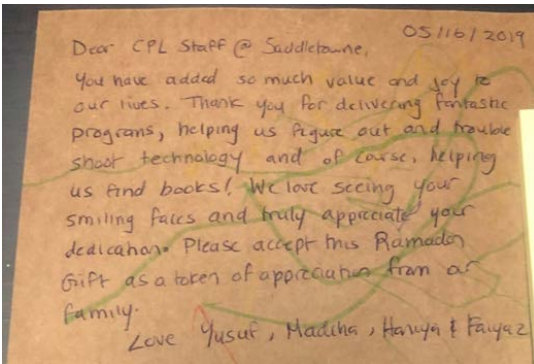 05/16/2019
Dear CPL Staff @ Saddletowne,
You have added so much value and joy to
our lives. Thank you for delivering fantastic
programs, helping us figure out and trouble
shoot technology and of course, helping
us find books! We love seeing your
smiling faces and truly appreciate your
dedication. Please accept this Ramadan
Gift as a token of appreciation from our
family.
Love Yusuf, Madiha, & Faiyaz